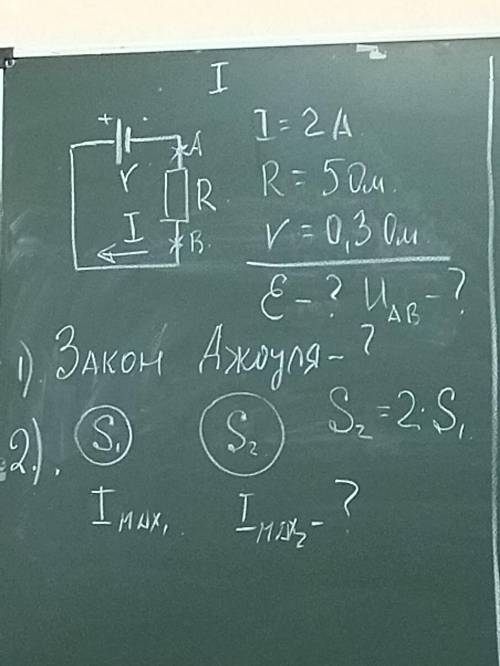 I
+ -
A
r
R
I
B
I = 2 А
R = 5 Ом.
r = 0,3 Ом
ℰ - ? U_AB - ?
1). Закон Джоуля - ?
2). S₁ S₂ S₂ = 2 · S₁
I max₁ I max₂ - ?